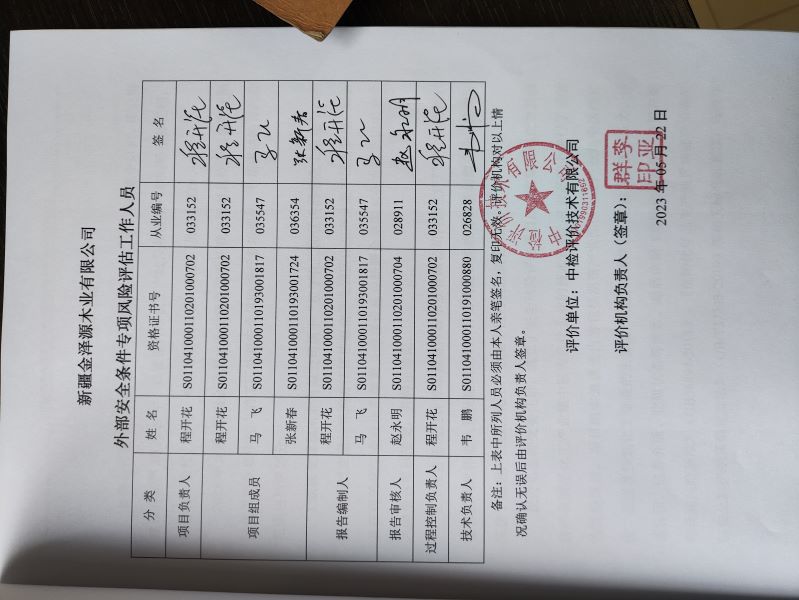 新疆金泽源木业有限公司
外部安全条件专项风险评估工作人员
分 类 姓 名 资格证书号 从业编号 签 名
项目负责人 程开花 S011041000110201000702 033152 程开花
项目组成员 程开花 S011041000110201000702 033152 程开花
马 飞 S011041000110193001817 035547 马飞
张新春 S011041000110193001724 036354 张新春
报告编制人 程开花 S011041000110201000702 033152 程开花
马 飞 S011041000110193001817 035547 马飞
报告审核人 赵永明 S011041000110201000704 028911 赵永明
过程控制负责人 程开花 S011041000110201000702 033152 程开花
技术负责人 韦 鹏 S011041000110191000880 026828
备注：上表中所列人员必须由本人亲笔签名，复印无效。评价机构对以上情
况确认无误后由评价机构负责人签章。
评价单位：中检评价技术有限公司
评价机构负责人（签章）：
李亚
群印
2023 年 05 月 22 日